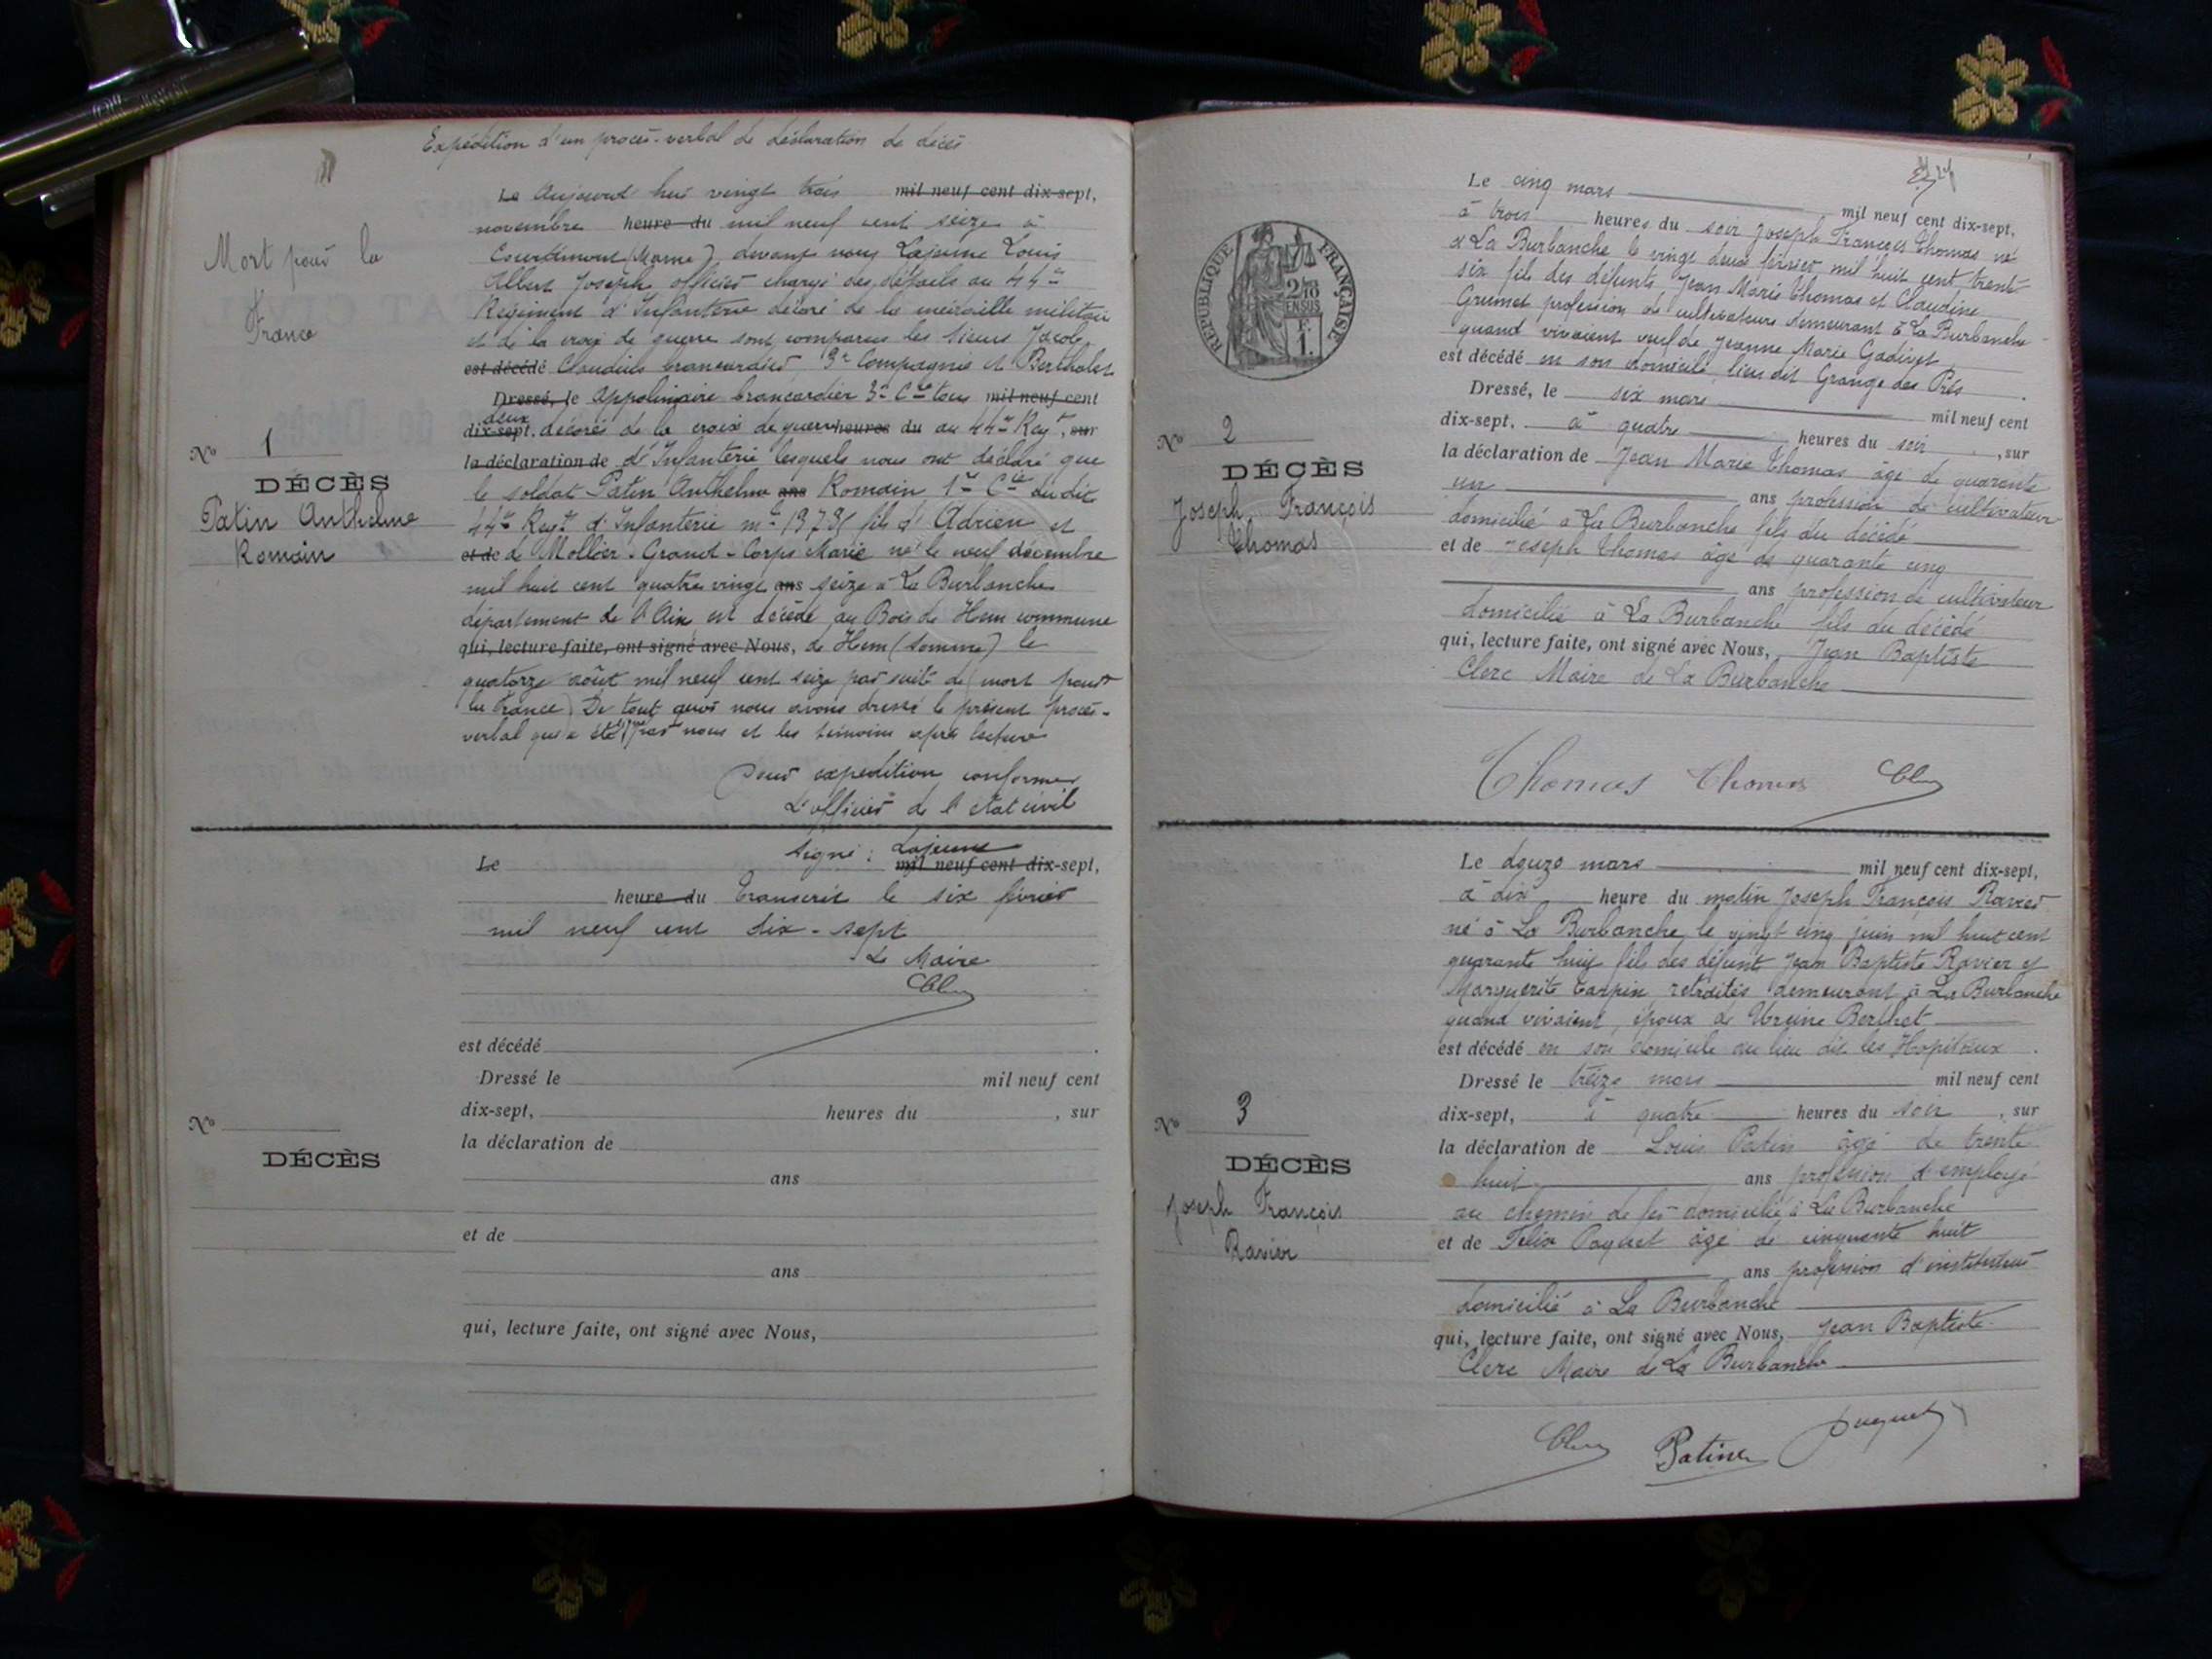 Expédition d'un procès-verbal de déclaration de décès
Mort pour la
France
Nº 1
DÉCÈS
Patin Anthelme
Romain
Le Aujourd'hui vingt trois mil neuf cent dix-sept,
novembre heure du mil neuf cent seize à
(Marne) devant nous Lajeune Louis
Albert Joseph officier chargé des détails au 44me
Régiment d'Infanterie décoré de la médaille militaire
et de la croix de guerre sont comparus les sieurs Jacob
est décédé Claudius brancardier 3e Compagnie et Bertholet
Dressé, le Appolinaire brancardier 3e Cie tous mil neuf cent
deux
dix-sept, décorés de la croix de guerre heures du au 44me Regt, sur
la déclaration de d'Infanterie lesquels nous ont déclaré que
le soldat Patin Anthelme ans Romain 1re Cie dudit
44me Regt d'Infanterie fils d'Adrien et
et de de Mollier-Grand-Corps Marie né le neuf décembre
mil huit cent quatre vingt ans seize à La Burbanche
département de l'Ain est décédé au Bois de Hem commune
qui, lecture faite, ont signé avec Nous, de Hem (Somme) le
quatorze août mil neuf cent seize par suite de (mort pour
la France) De tout quoi nous avons dressé le présent procès-
verbal qui a été signé par nous et les témoins après lecture
Pour expédition conforme
L'officier de l'état civil
Signé : Lajeune
Le mil neuf cent dix-sept,
heure du Transcrit le six février
mil neuf cent dix-sept
Le Maire
est décédé
Dressé le mil neuf cent
dix-sept, heures du , sur
Nº
la déclaration de
DÉCÈS
ans
et de
ans
qui, lecture faite, ont signé avec Nous,
RÉPUBLIQUE FRANÇAISE
2/10
EN SUS
1 F.
Nº 2
DÉCÈS
Joseph François
Thomas
Le cinq mars mil neuf cent dix-sept,
à trois heures du soir Joseph François Thomas né
à La Burbanche le vingt deux février mil huit cent trente
six fils des défunts Jean Marie Thomas et Claudine
Grumet profession de cultivateurs demeurant à La Burbanche
quand vivaient veuf de Jeanne Marie Gadivet
est décédé en son domicile, lieu dit Grange des Prés.
Dressé, le six mars mil neuf cent
dix-sept, à quatre heures du soir, sur
la déclaration de Jean Marie Thomas âgé de quarante
un ans profession de cultivateur
domicilié à La Burbanche fils du décédé
et de Joseph Thomas âgé de quarante cinq
ans profession de cultivateur
domicilié à La Burbanche fils du décédé
qui, lecture faite, ont signé avec Nous, Jean Baptiste
Clerc Maire de La Burbanche
Thomas Thomas
Nº 3
DÉCÈS
Joseph François
Ravier
Le douze mars mil neuf cent dix-sept,
à dix heure du matin Joseph François Ravier
né à La Burbanche le vingt cinq juin mil huit cent
quarante huit fils des défunt Jean Baptiste Ravier et
Marguerite Carpin retraités demeurant à La Burbanche
quand vivaient, époux de Ursine Berthet
est décédé en son domicile au lieu dit les Hopitaux.
Dressé le treize mars mil neuf cent
dix-sept, à quatre heures du soir, sur
la déclaration de Louis Patin âgé de trente
huit ans profession d'employé
au chemin de fer domicilié à La Burbanche
et de Felix Paquet âgé de cinquante huit
ans profession d'instituteur
domicilié à La Burbanche
qui, lecture faite, ont signé avec Nous, Jean Baptiste
Clerc Maire de La Burbanche
Patin